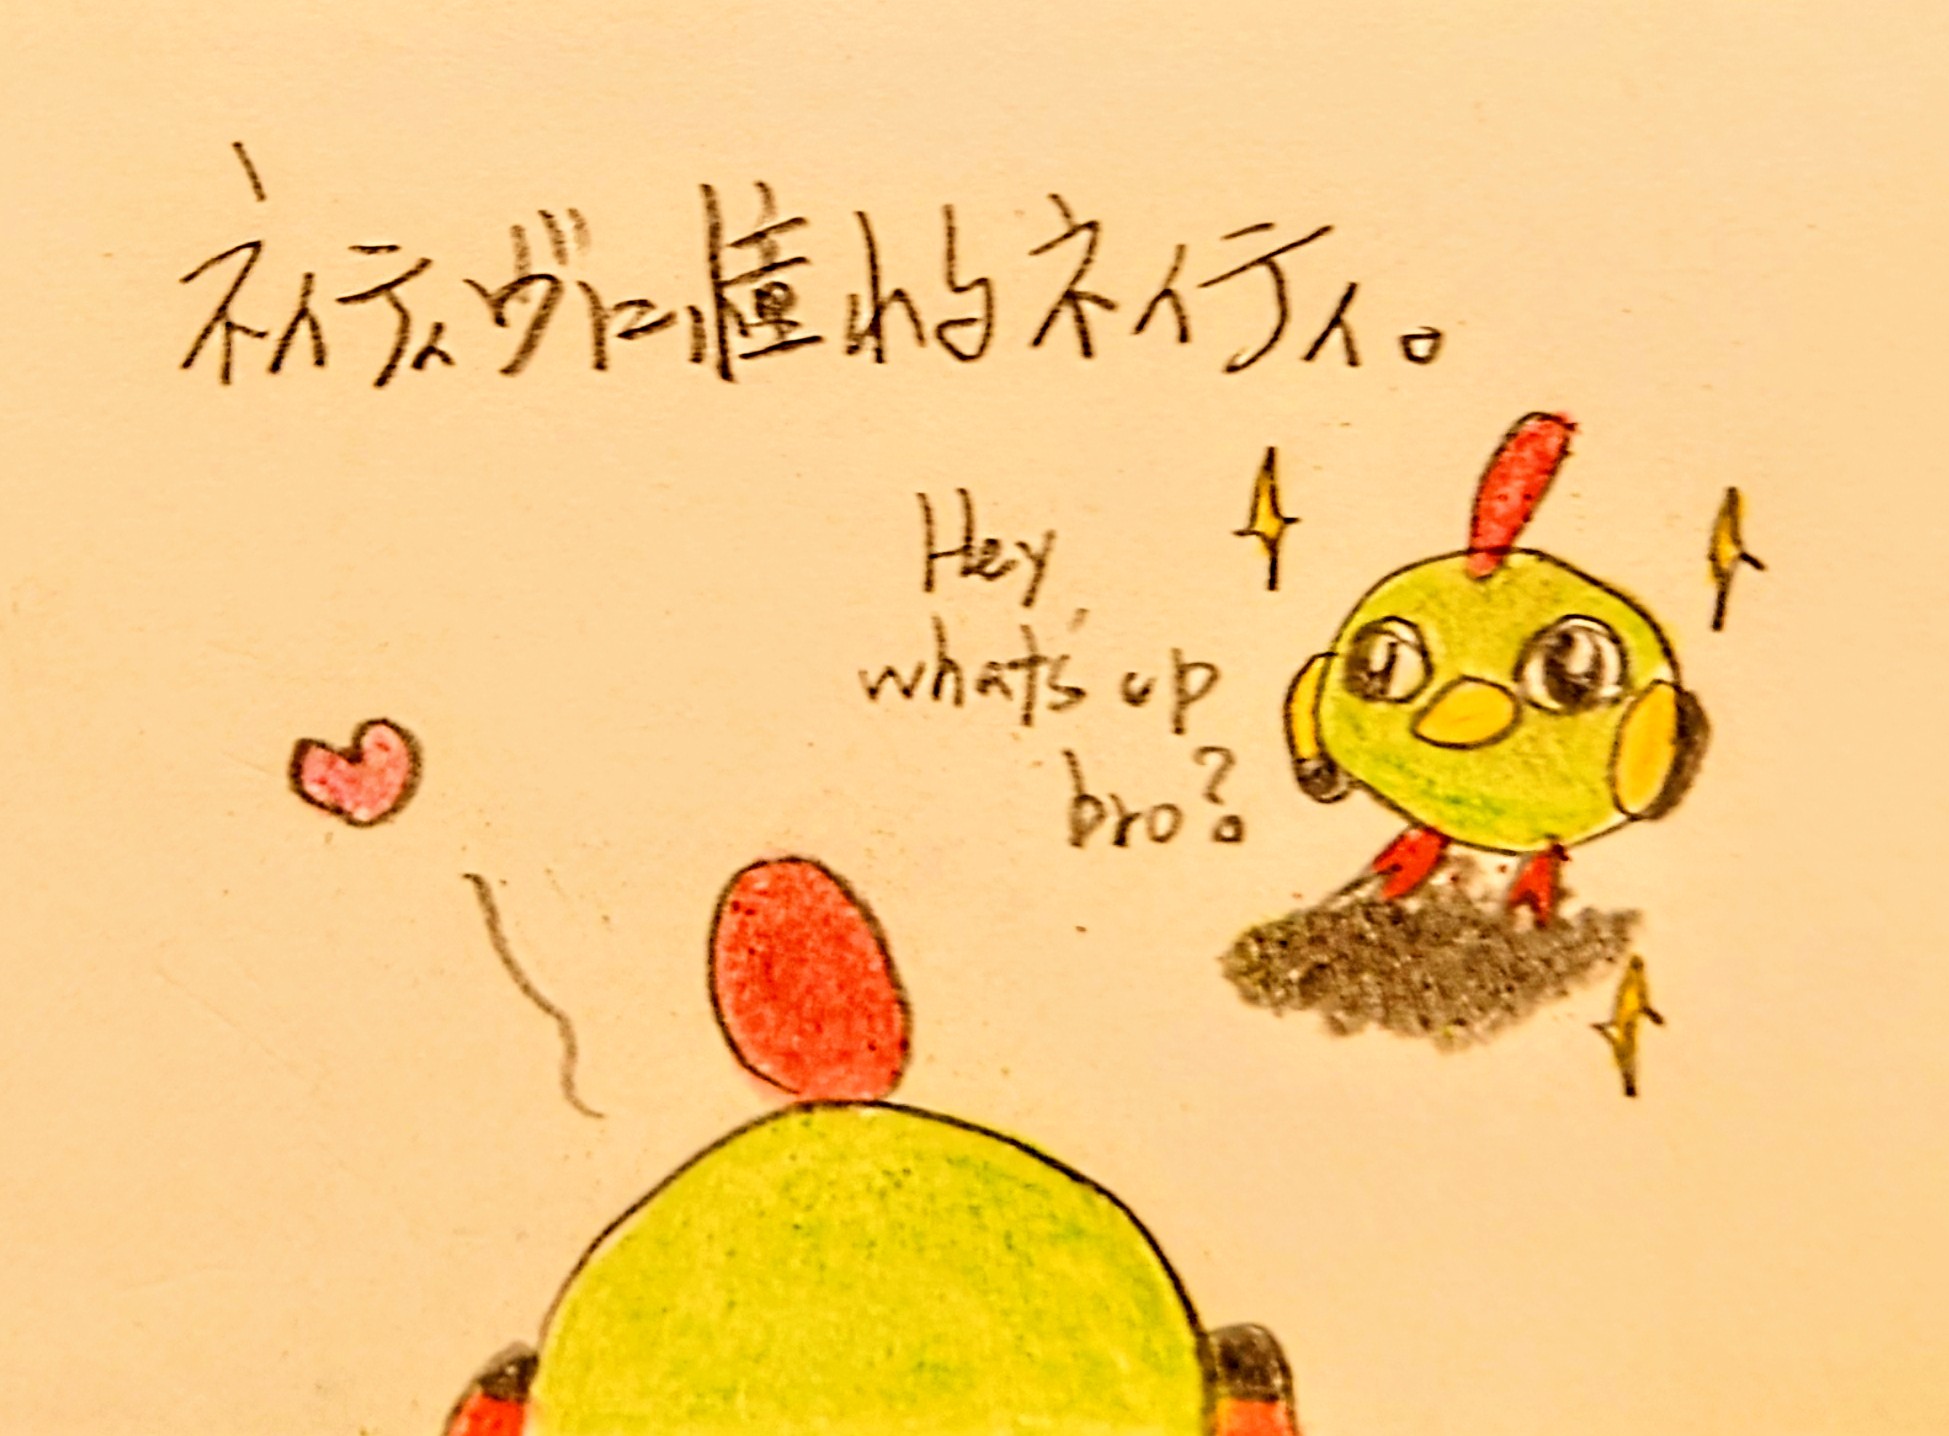 ネイティヴに憧れるネイティ。
Hey
what's up
bro?